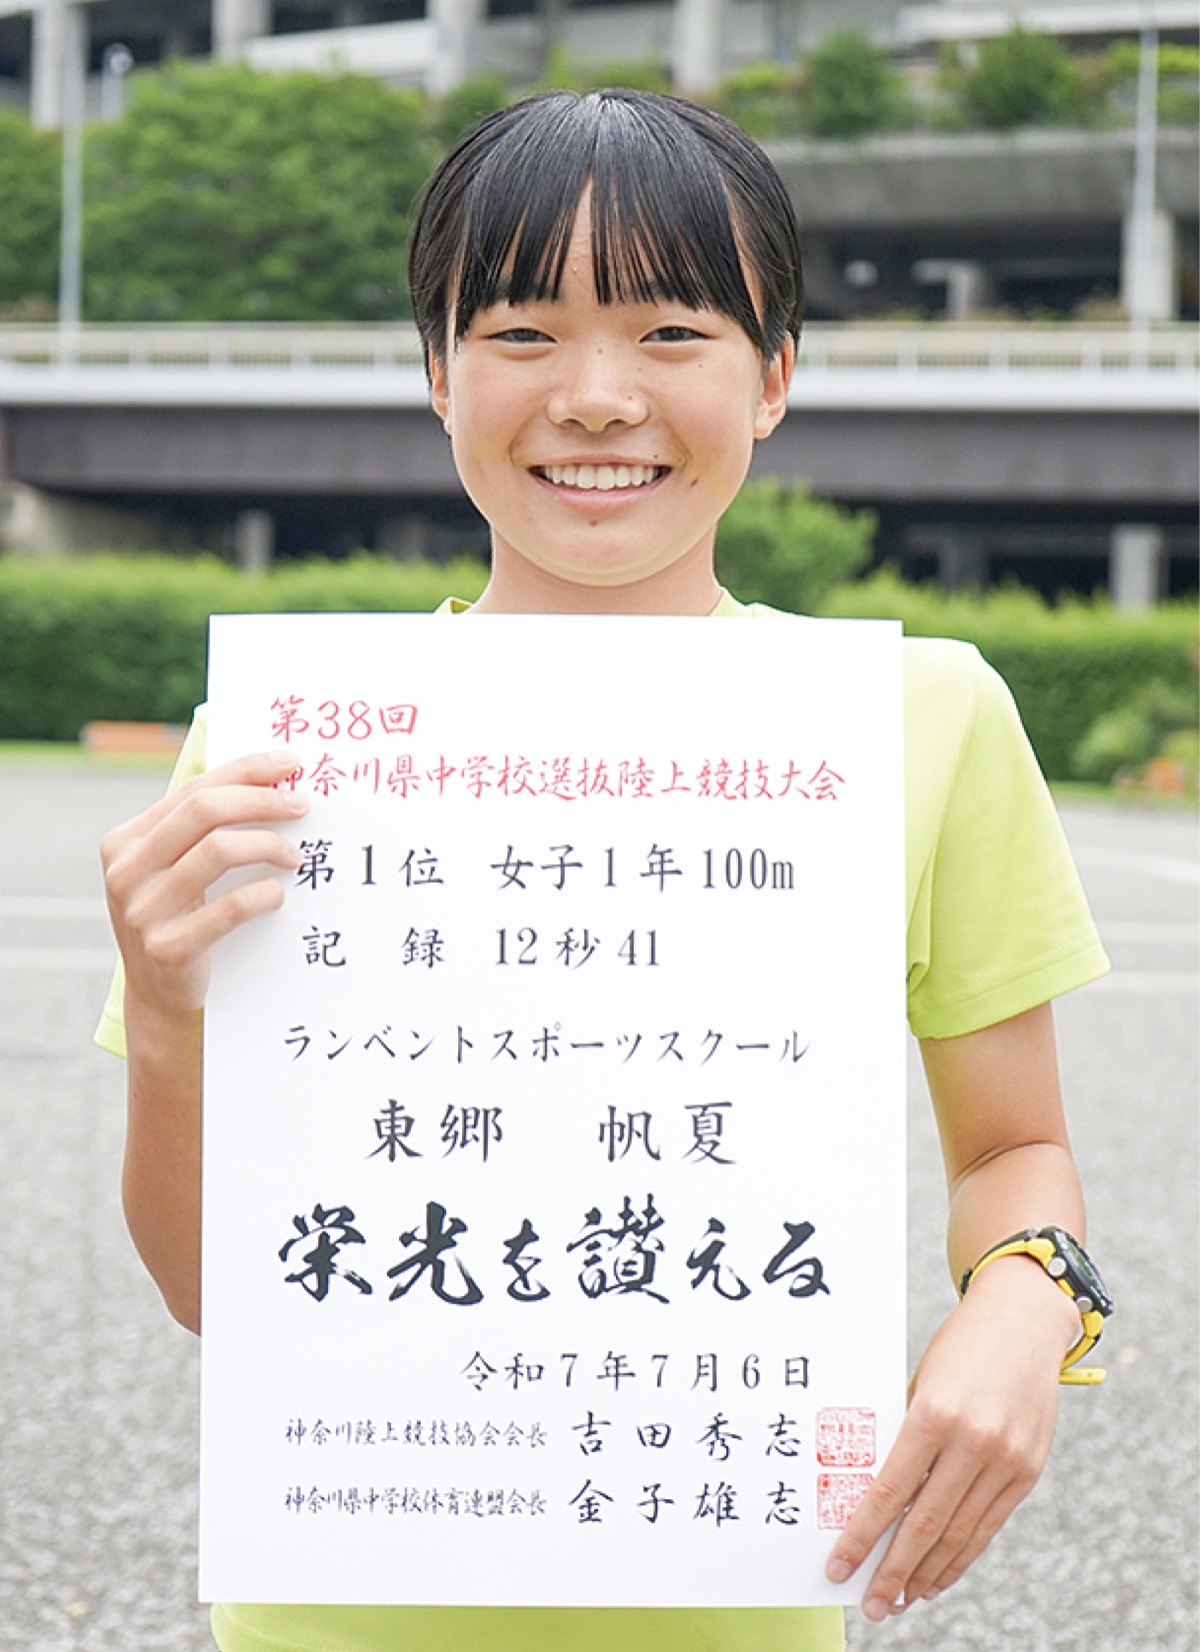 第38回
神奈川県中学校選抜陸上競技大会
第1位 女子1年100m
記録 12秒41
ランベントスポーツスクール
東郷 帆夏
栄光を讃える
令和7年7月6日
神奈川陸上競技協会会長 吉田秀志
神奈川県中学校体育連盟会長 金子雄志